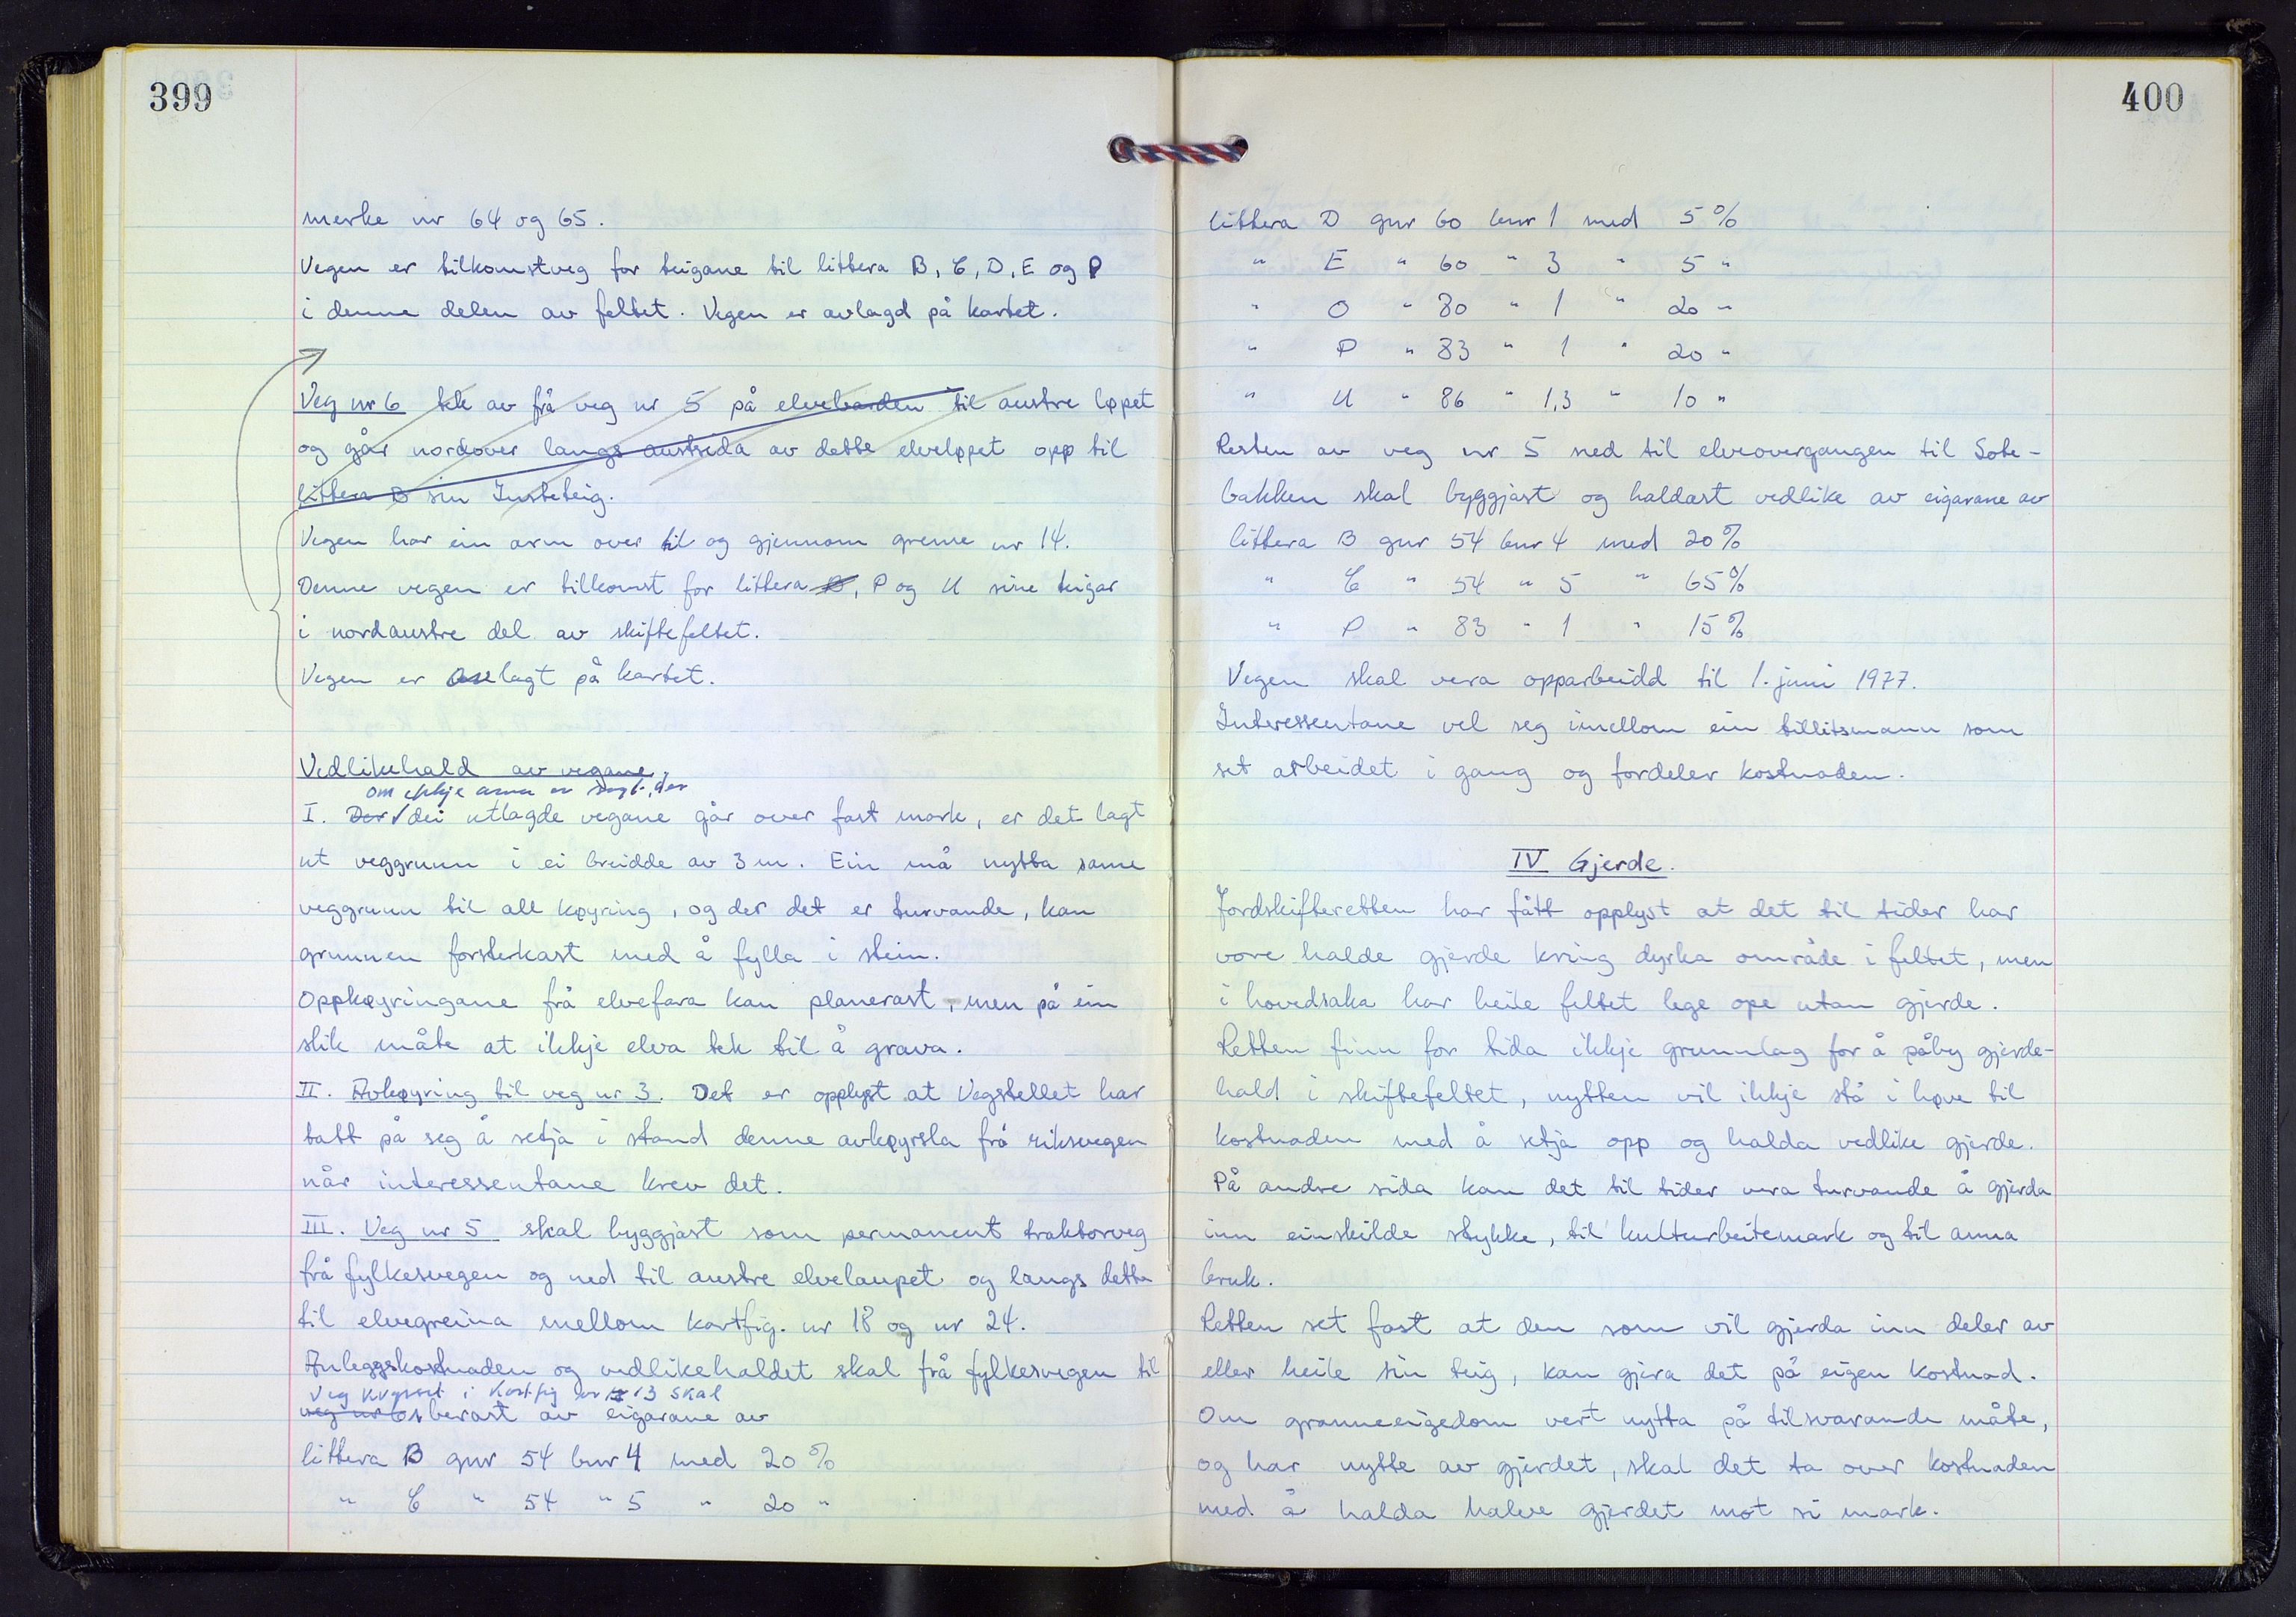 399
merke nr 64 og 65.
Vegen er tilkomstveg for teigane til littera B, C, D, E og P
i denne delen av feltet. Vegen er avlagd på kartet.
Veg nr 6 tek av frå veg nr 5 på elvebarden til austre løpet
og går nordover langs austsida av dette elveløpet opp til
littera B sin Insteteig.
Vegen har ein arm over til og gjennom grense nr 14.
Denne vegen er tilkomst for littera B, P og U sine teigar
i nordaustre del av skiftefeltet.
Vegen er avlagt på kartet.
Vedlikehald av vegane.
om ikkje anna er sagt, der
I. Der dei utlagde vegane går over fast mark, er det lagt
ut veggrunn i ei breidde av 3 m. Ein må nytta same
veggrunn til all køyring, og der det er turvande, kan
grunnen forsterkast med å fylla i stein.
Oppkøyringane frå elvefara kan planerast, men på ein
slik måte at ikkje elva tek til å grava.
II. Avkøyring til veg nr 3. Det er opplyst at Vegstellet har
tatt på seg å setja i stand denne avkøyrsla frå riksvegen
når interessentane krev det.
III. Veg nr 5 skal byggjast som permanent traktorveg
frå fylkesvegen og ned til austre elvelaupet og langs dette
til elvegreina mellom kartfig. nr 18 og nr 24.
Anleggskostnaden og vedlikehaldet skal frå fylkesvegen til
veg kryset i kartfig nr 13 skal
veg nr 6 berast av eigarane av
littera B gnr 54 bnr 4 med 20 %
" C " 54 " 5 " 20 "
400
littera D gnr 60 bnr 1 med 5 %
" E " 60 " 3 " 5 "
" O " 80 " 1 " 20 "
" P " 83 " 1 " 20 "
" U " 86 " 1,3 " 10 "
Resten av veg nr 5 ned til elveovergangen til Sote-
bakken skal byggjast og haldast vedlike av eigarane av
littera B gnr 54 bnr 4 med 20 %
" C " 54 " 5 " 65 %
" P " 83 " 1 " 15 %
Vegen skal vera opparbeidd til 1. juni 1977.
Interessentane vel seg imellom ein tillitsmann som
set arbeidet i gang og fordeler kostnaden.
IV Gjerde.
Jordskifteretten har fått opplyst at det til tider har
vore halde gjerde kring dyrka område i feltet, men
i hovedsaka har heile feltet lege ope utan gjerde.
Retten finn for tida ikkje grunnlag for å påby gjerde-
hald i skiftefeltet, nytten vil ikkje stå i høve til
kostnaden med å setja opp og halda vedlike gjerde.
På andre sida kan det til tider vera turvande å gjerda
inn einskilde stykke, til kulturbeitemark og til anna
bruk.
Retten set fast at den som vil gjerda inn deler av
eller heile sin teig, kan gjera det på eigen kostnad.
Om granneeigedom vert nytta på tilsvarande måte,
og har nytte av gjerdet, skal det ta over kostnaden
med å halda halve gjerdet mot si mark.